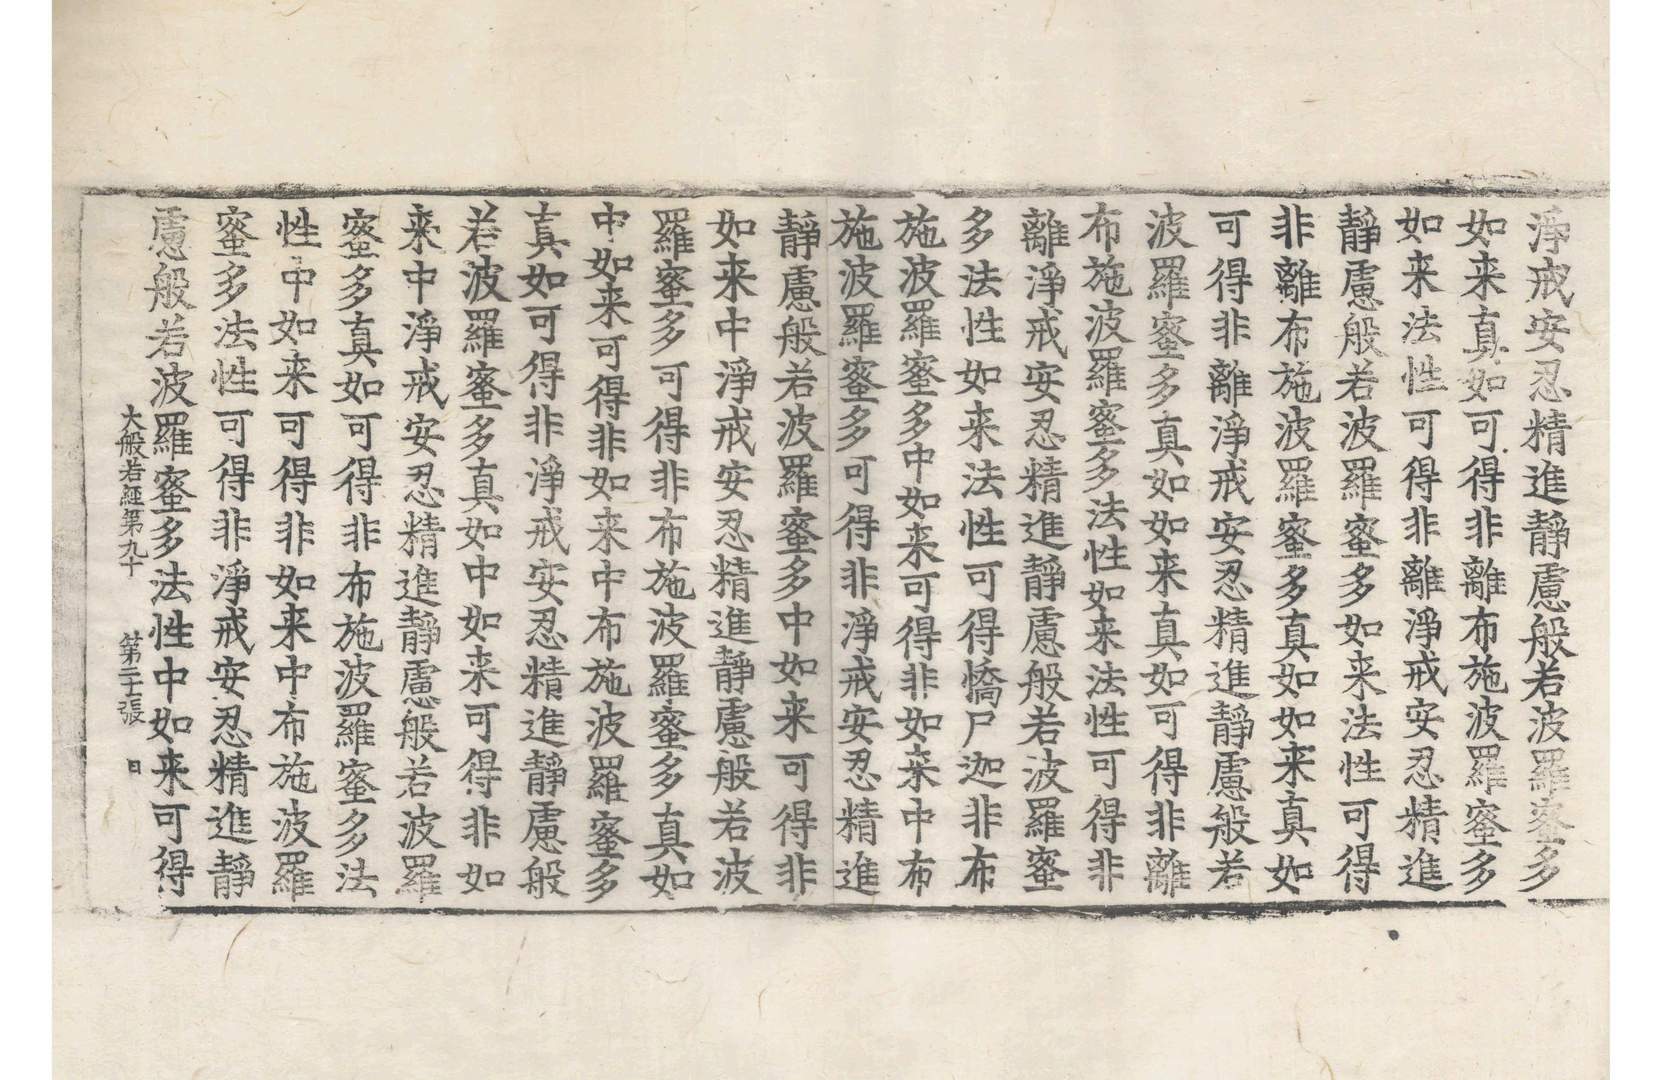 淨戒安忍精進靜慮般若波羅蜜多
如来真如可得非離布施波羅蜜多
如来法性可得非離淨戒安忍精進
靜慮般若波羅蜜多如来法性可得
非離布施波羅蜜多真如如来真如
可得非離淨戒安忍精進靜慮般若
波羅蜜多真如如来真如可得非離
布施波羅蜜多法性如来法性可得非
離淨戒安忍精進靜慮般若波羅蜜
多法性如来法性可得憍尸迦非布
施波羅蜜多中如来可得非如来中布
施波羅蜜多可得非淨戒安忍精進
靜慮般若波羅蜜多中如来可得非
如来中淨戒安忍精進靜慮般若波
羅蜜多可得非布施波羅蜜多真如
中如来可得非如来中布施波羅蜜多
真如可得非淨戒安忍精進靜慮般
若波羅蜜多真如中如来可得非如
来中淨戒安忍精進靜慮般若波羅
蜜多真如可得非布施波羅蜜多法
性中如来可得非如来中布施波羅
蜜多法性可得非淨戒安忍精進靜
慮般若波羅蜜多法性中如来可得
大般若經第九十 第二十張 日